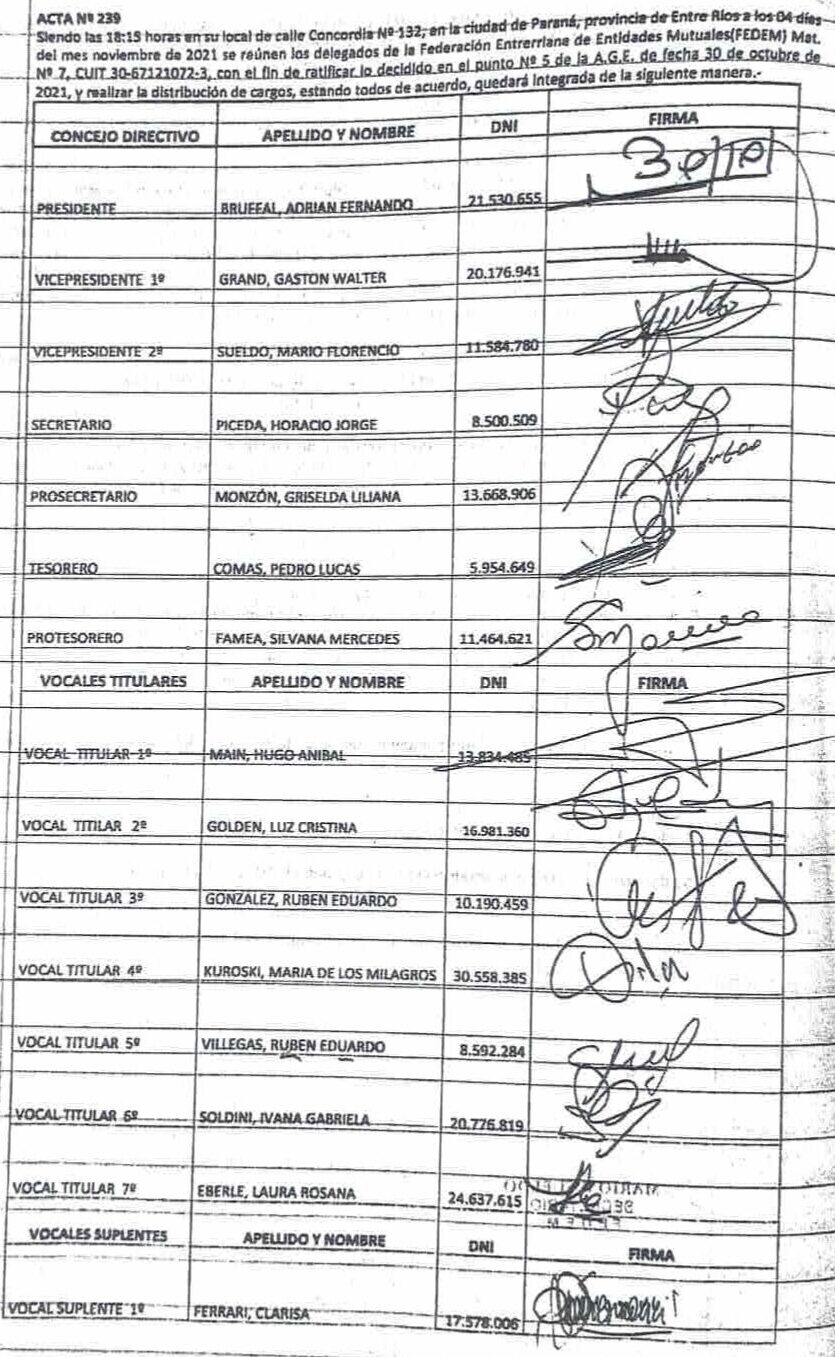 ACTA Nº 239
Siendo las 18:15 horas en su local de calle Concordia Nº 132, en la ciudad de Paraná, provincia de Entre Ríos a los 04 días
del mes noviembre de 2021 se reúnen los delegados de la Federación Entrerriana de Entidades Mutuales(FEDEM) Mat.
Nº 7, CUIT 30-67121072-3, con el fin de ratificar lo decidido en el punto Nº 5 de la A.G.E. de fecha 30 de octubre de
2021, y realizar la distribución de cargos, estando todos de acuerdo, quedará integrada de la siguiente manera.-
CONCEJO DIRECTIVO APELLIDO Y NOMBRE DNI FIRMA
PRESIDENTE BRUFFAL, ADRIAN FERNANDO 21.530.655
VICEPRESIDENTE 1º GRAND, GASTON WALTER 20.176.941
VICEPRESIDENTE 2º SUELDO, MARIO FLORENCIO 11.584.780
SECRETARIO PICEDA, HORACIO JORGE 8.500.509
PROSECRETARIO MONZÓN, GRISELDA LILIANA 13.668.906
TESORERO COMAS, PEDRO LUCAS 5.954.649
PROTESORERO FAMEA, SILVANA MERCEDES 11.464.621
VOCALES TITULARES APELLIDO Y NOMBRE DNI FIRMA
VOCAL TITULAR 1º MAIN, HUGO ANIBAL 13.834.485
VOCAL TITILAR 2º GOLDEN, LUZ CRISTINA 16.981.360
VOCAL TITULAR 3º GONZÁLEZ, RUBEN EDUARDO 10.190.459
VOCAL TITULAR 4º KUROSKI, MARIA DE LOS MILAGROS 30.558.385
VOCAL TITULAR 5º VILLEGAS, RUBEN EDUARDO 8.592.284
VOCAL TITULAR 6º SOLDINI, IVANA GABRIELA 20.776.819
VOCAL TITULAR 7º EBERLE, LAURA ROSANA 24.637.615
VOCALES SUPLENTES APELLIDO Y NOMBRE DNI FIRMA
VOCAL SUPLENTE 1º FERRARI, CLARISA 17.578.006